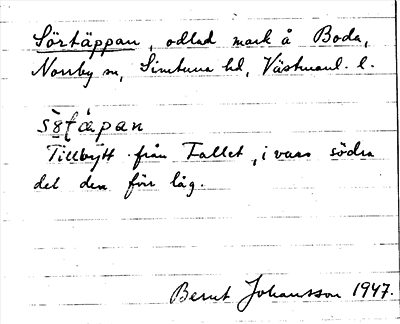 Sörtäppan, odlad mark å Boda,
Norrby sn, Simtuna hd, Västmanl. l.
Tillbytt från Fallet, i vars södra
del den förr låg.
Bernt Johansson 1947.